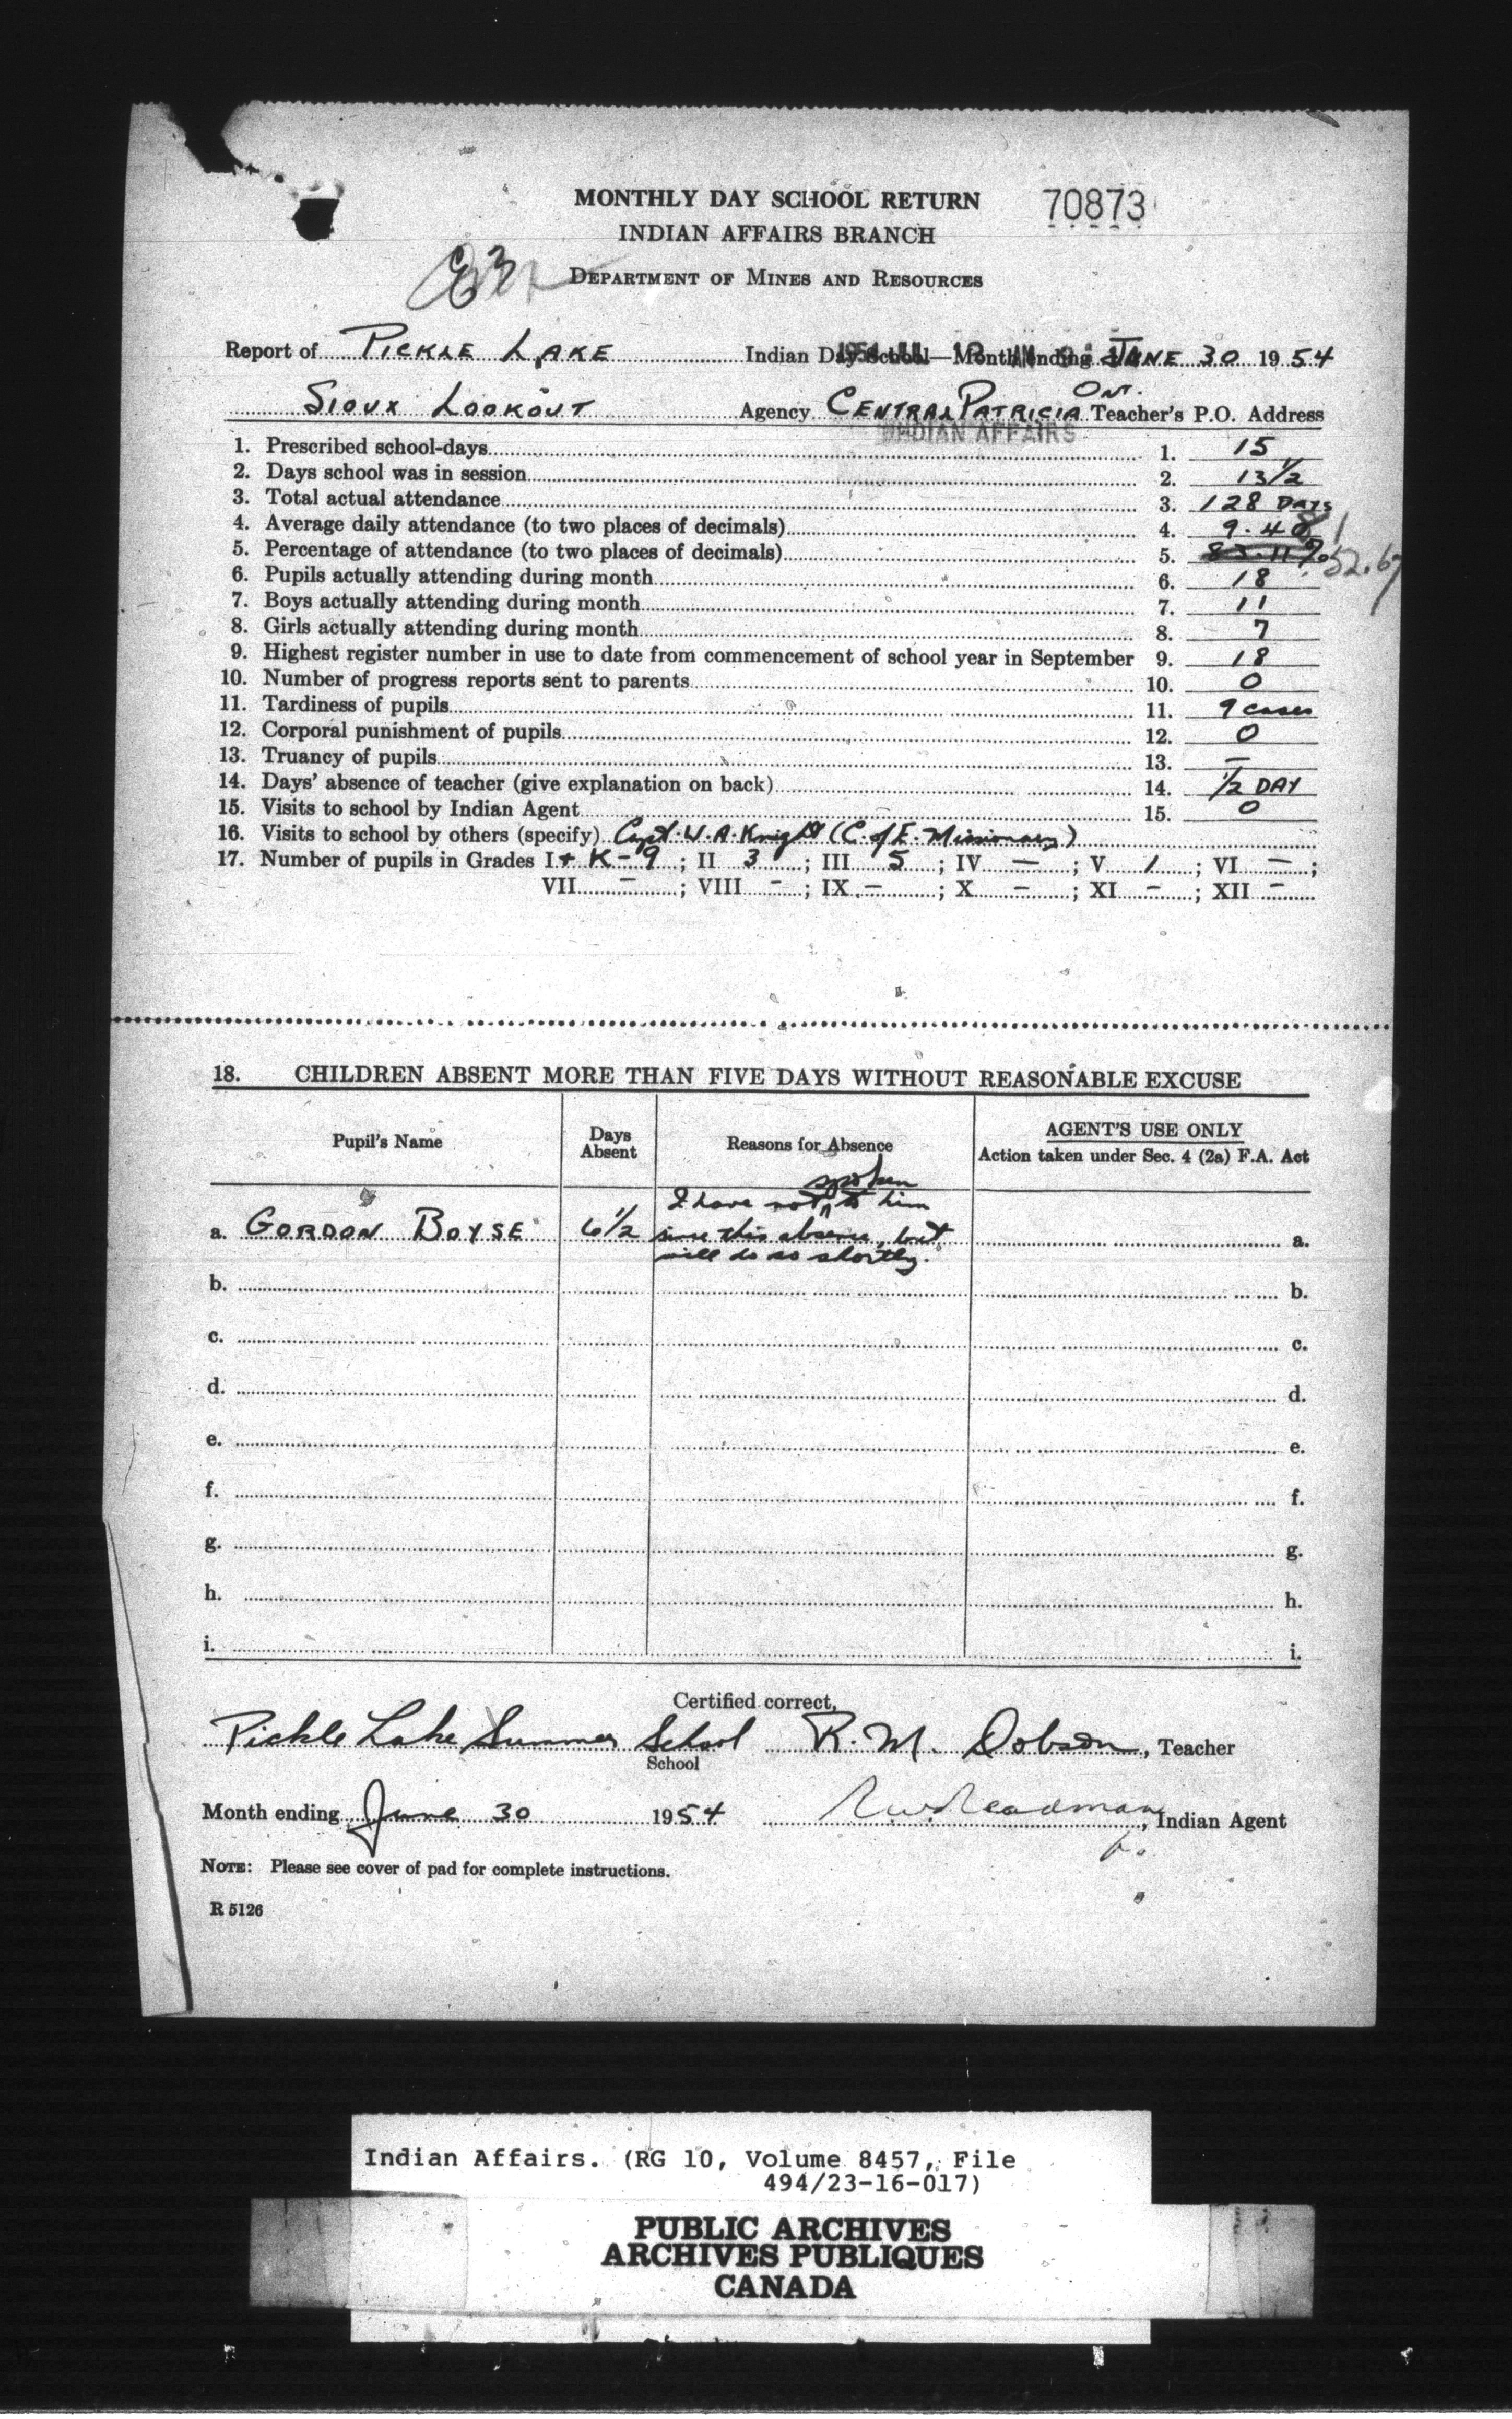 MONTHLY DAY SCHOOL RETURN 70873
INDIAN AFFAIRS BRANCH
DEPARTMENT OF MINES AND RESOURCES
Report of PICKLE LAKE Indian Day School—Month ending JUNE 30 1954
SIOUX LOOKOUT Agency CENTRAL PATRICIA ON. Teacher's P.O. Address
INDIAN AFFAIRS
1. Prescribed school-days 1. 15
2. Days school was in session 2. 13 1/2
3. Total actual attendance 3. 128 DAYS
4. Average daily attendance (to two places of decimals) 4. 9.48
5. Percentage of attendance (to two places of decimals) 5. 83.11% 52.67
6. Pupils actually attending during month 6. 18
7. Boys actually attending during month 7. 11
8. Girls actually attending during month 8. 7
9. Highest register number in use to date from commencement of school year in September 9. 18
10. Number of progress reports sent to parents 10. 0
11. Tardiness of pupils 11. 9 cases
12. Corporal punishment of pupils 12. 0
13. Truancy of pupils 13. —
14. Days' absence of teacher (give explanation on back) 14. 1/2 DAY
15. Visits to school by Indian Agent 15. 0
16. Visits to school by others (specify) Capt. W. A. Knight (C. of E. Missionary)
17. Number of pupils in Grades I + K - 9; II 3; III 5; IV —; V 1; VI —;
VII —; VIII -; IX —; X —; XI —; XII —
18. CHILDREN ABSENT MORE THAN FIVE DAYS WITHOUT REASONABLE EXCUSE
Pupil's Name Days Absent Reasons for Absence AGENT'S USE ONLY
Action taken under Sec. 4 (2a) F.A. Act
spoken
I have not ^ to him
a. GORDON BOYSE 6 1/2 since this absence, but a.
will do so shortly.
b. b.
c. c.
d. d.
e. e.
f. f.
g. g.
h. h.
i. i.
Certified correct,
Pickle Lake Summer School R. M. Dobson, Teacher
School
Month ending June 30 1954 R.W. Readman, Indian Agent
NOTE: Please see cover of pad for complete instructions.
R 5126
Indian Affairs. (RG 10, Volume 8457, File
494/23-16-017)
PUBLIC ARCHIVES
ARCHIVES PUBLIQUES
CANADA